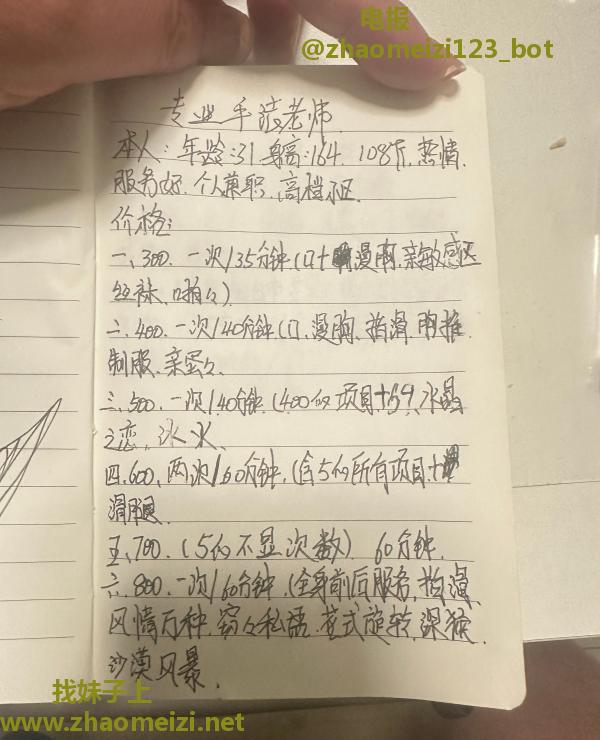 电报
@zhaomeizi123_bot
专业手法老师
本人:年龄:31 身高:164. 108斤,热情.
服务好.个人兼职,高档小区.
价格:
一、300.一次/35分钟(口+漫胸,亲敏感区
丝袜、啪々)
二、400.一次/40分钟(口,漫胸、指滑,胸推
制服、亲蛋々
三、500.一次/40分钟(400的项目+69,水晶
之恋,冰火、
四.600、两次/60分钟,(含5的所有项目+
滑腿
五、700.(5的不显次数) 60分钟.
六、800.一次/60分钟(全身前后服务,指漫
风情万种.窃々私语.花式旋转,深喉.
沙漠风暴.
找妹子上
www.zhaomeizi.net